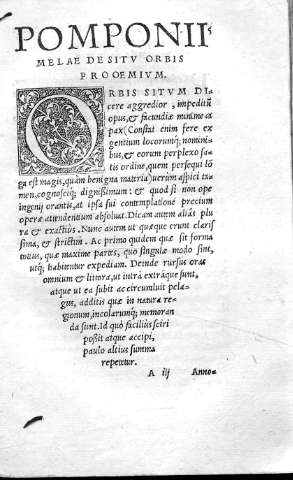 POMPONII
MELAE DE SITV ORBIS
PROOEMIVM.
ORBIS SITVM DI
cere aggredior, impeditū
opus, & facundiæ minime ca
pax (Constat enim fere ex
gentium locorumq; nomini
bus, & eorum perplexo sa
tis ordine, quem persequi lō
ga est magis, quàm benigna materia) uerum aspici ta
men, cognosciq; dignissimum: & quod si non ope
ingenij orantis, at ipsa sui contemplatione precium
operæ attendentium absoluat. Dicam autem aliâs plu
ra & exactius. Nunc autem ut quæque erunt claris
sima, & strictim. Ac primo quidem quæ sit forma
totius, quæ maximæ partes, quo singulæ modo sint,
utiq; habitentur expediam. Deinde rursus oras
omnium & litora, ut intra extráque sunt,
atque ut ea subit ac circumluit pela-
gus, additis quæ in natura re-
gionum, incolarumq; memoran
da sunt. Id quò facilius sciri
possit atque accipi,
paulo altius summa
repetetur.
A iij Anno-